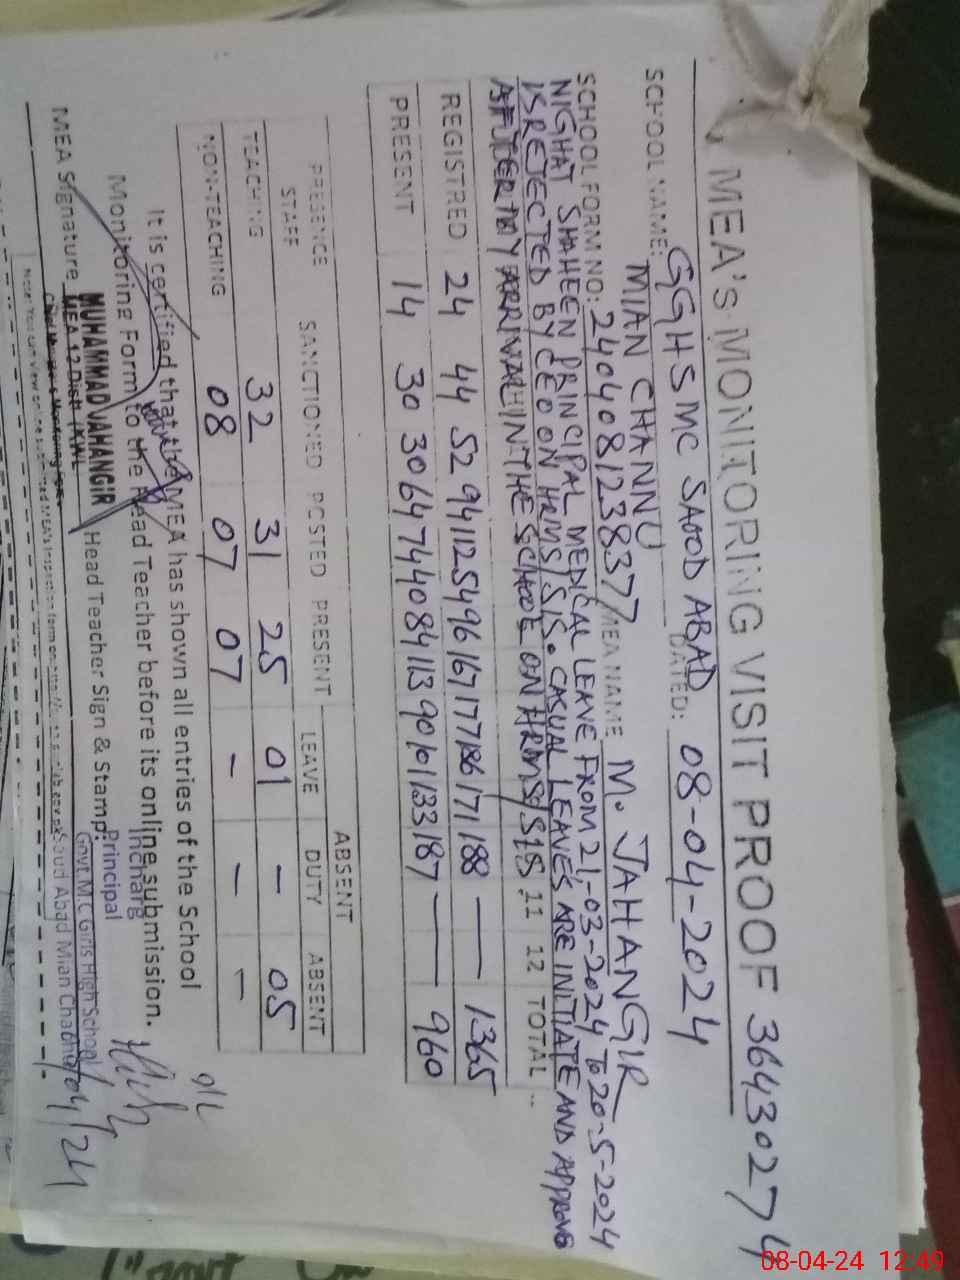 MEA'S MONITORING VISIT PROOF 36430274
SCHOOL NAME: GGHS MC SAOOD ABAD DATED: 08-04-2024
MIAN CHANNU
SCHOOL FORM NO: 240408123837 MEA NAME M. JAHANGIR
NIGHAT SHAHEEN PRINCIPAL MEDICAL LEAVE FROM 21-03-2024 TO 20-5-2024
IS REJECTED BY CEO ON HRMS/SIS. CASUAL LEAVES ARE INITIATE AND APPROVE
AFTER MY ARRIVAL IN THE SCHOOL ON HRMS/SIS 11 12 TOTAL
REGISTRED 24 44 52 94 112 154 96 167 177 186 171 188 — 1365
PRESENT 14 30 30 64 74 40 84 113 90 101 133 187 — 960
ABSENT
PRESENCE SANCTIONED POSTED PRESENT LEAVE DUTY ABSENT
STAFF
TEACHING 32 31 25 01 - 05
NON-TEACHING 08 07 07 - - -
It is certified that the MEA has shown all entries of the School
Monitoring Form to the Head Teacher before its online submission.
MEA Signature Head Teacher Sign & Stamp:
MUHAMMAD JAHANGIR
MEA 12 Distt KWL
Incharg
Principal
Govt. M.C Girls High School
Abad Mian Channu
08-04-24 12:49